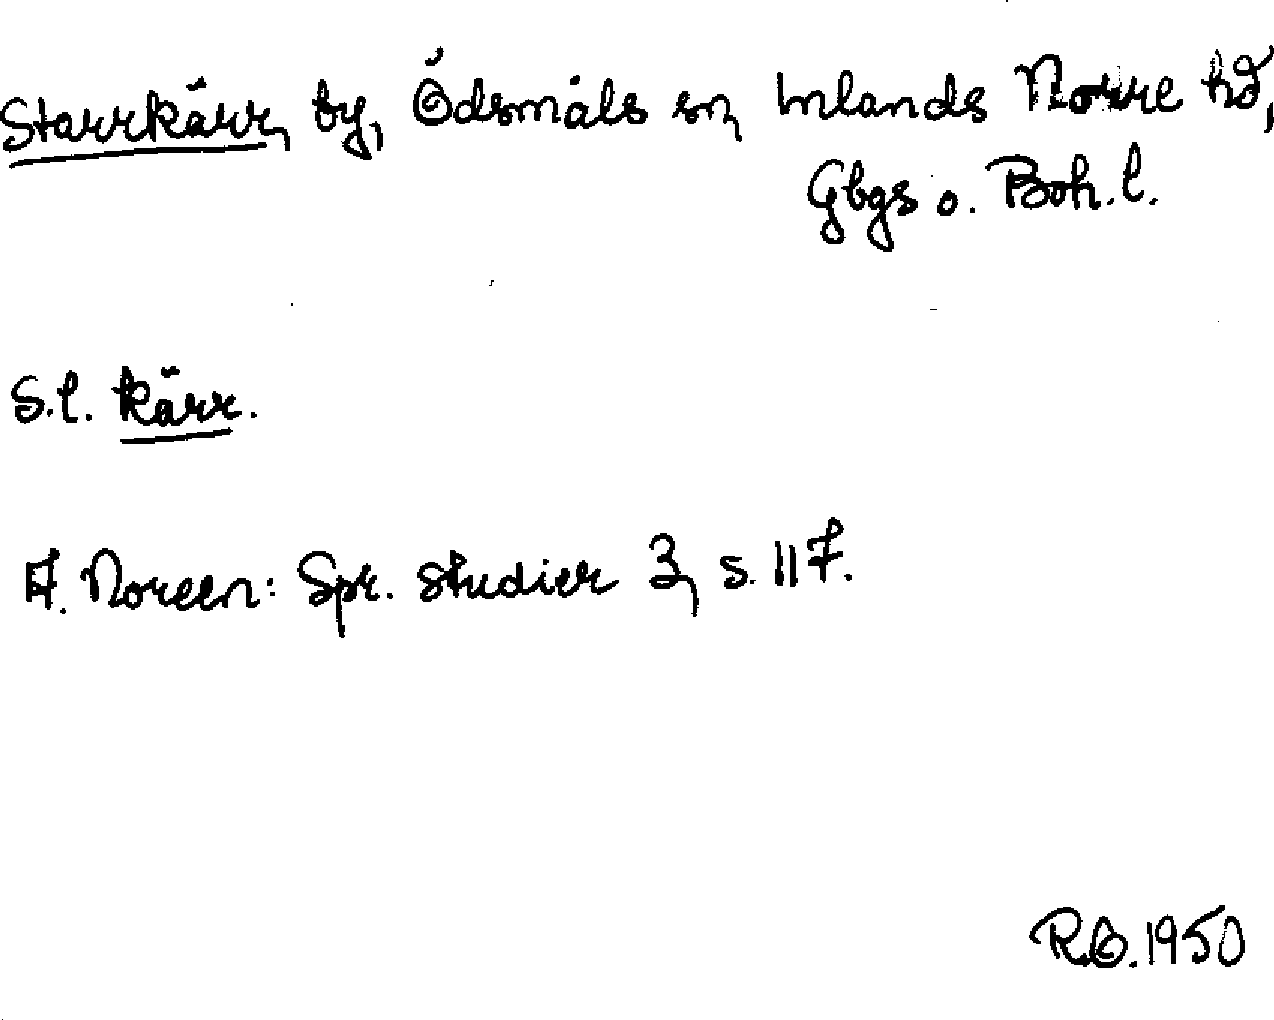 Starrkärr, by, Ödsmåls sn, Inlands Norre hd,
Gbgs o. Boh. l.
S.l. kärr.
A. Noreen: Spr. studier 3, s. 117.
R.O. 1950